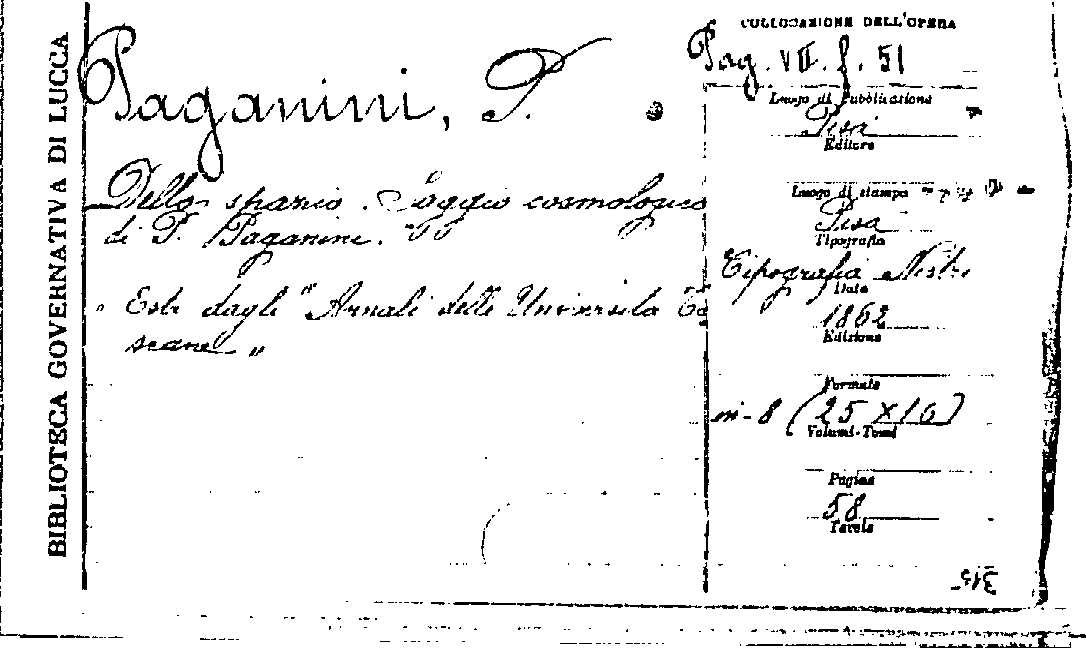 BIBLIOTECA GOVERNATIVA DI LUCCA
Paganini, P.
Dello spazio. Saggio cosmologico
di P. Paganini.
Estr. dagli "Annali delle Università To
scane"
COLLOCAZIONE DELL'OPERA
Pag. VII. f. 51
Luogo di Pubblicazione
Pisa
Editore
Luogo di stampa
Pisa
Tipografia
Tipografia Nistri
Data
1862
Edizione
Formato
in-8 (25×16)
Volumi-Tomi
Pagine
58
Tavole
315